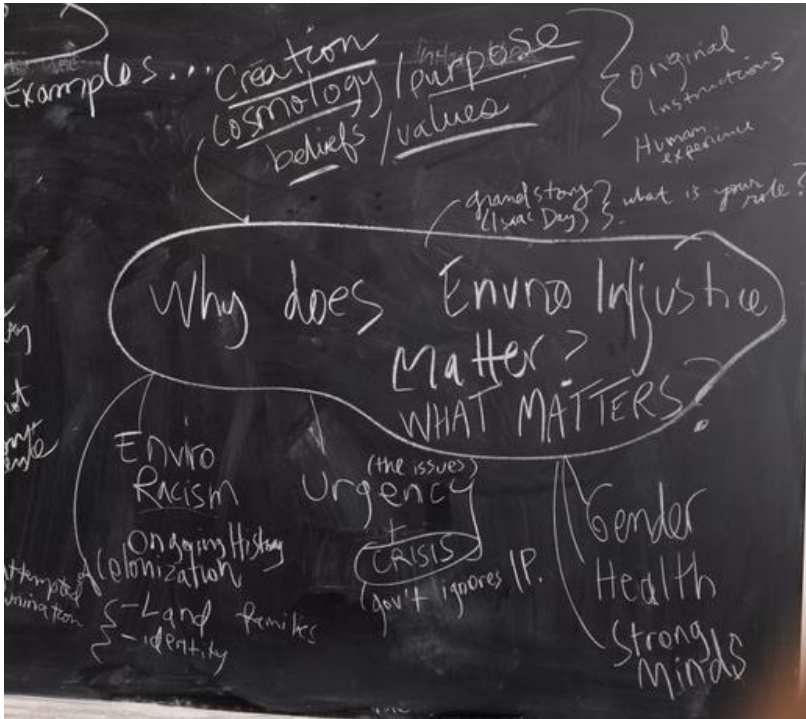 Examples...
Creation
Cosmology / purpose
beliefs / values
Original
Instructions
Human
experience
grand story
(Isaac Day)
what is your
role?
Why does Enviro Injustice
Matter?
WHAT MATTERS?
Enviro
Racism
Ongoing History
of Colonization
- Land families
- identity
(the issues)
Urgency
+
CRISIS
(gov't ignores IP.
Gender
Health
Strong
Minds